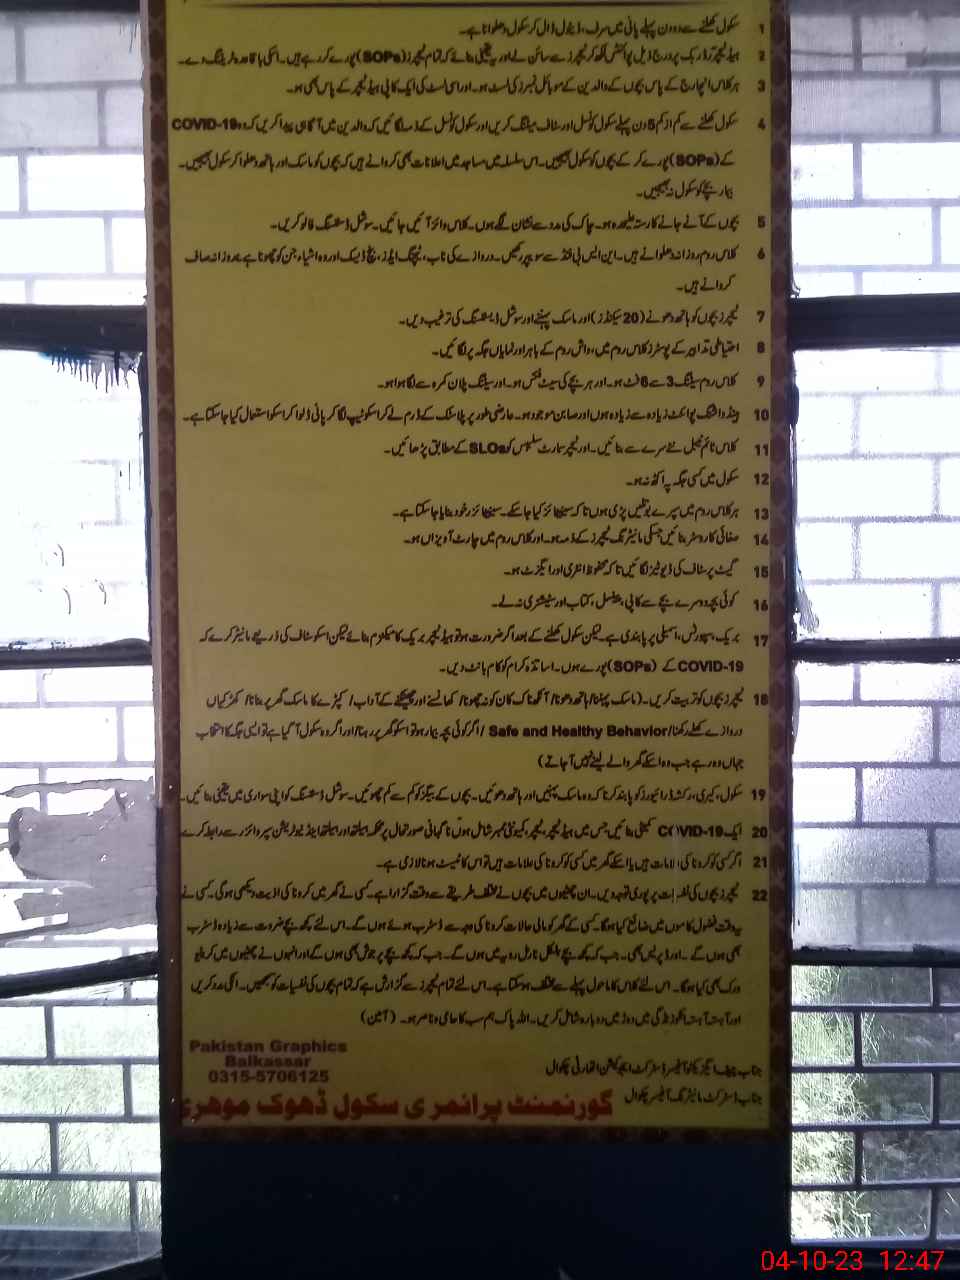 1 سکول کھلنے سے دو دن پہلے پانی میں سرف، ڈیٹول ڈال کر سکول دھلوانا ہے۔
2 ہیڈ ٹیچرز آرڈر بک پر درج ذیل پوائنٹس لکھ کر ٹیچرز سے سائن لے اور یہ یقینی بنائے کہ تمام ٹیچرز (SOPs) پورے کر رہے ہیں۔ اسکی باقاعدہ ٹریننگ دے۔
3 ہر کلاس انچارج کے پاس بچوں کے والدین کے موبائل نمبرز کی لسٹ ہو۔ اور اسی لسٹ کی ایک کاپی ہیڈ ٹیچر کے پاس بھی ہو۔
4 سکول کھلنے سے کم از کم 5 دن پہلے سکول کونسل اور سٹاف میٹنگ کریں اور سکول کونسل کے ذمہ لگائیں کہ والدین میں آگاہی پیدا کریں کہ وہ COVID-19
کے (SOPs) پورے کر کے بچوں کو سکول بھیجیں۔ اس سلسلہ میں مساجد میں اعلانات بھی کروانے ہیں کہ بچوں کو ماسک اور ہاتھ دھلوا کر سکول بھیجیں۔
بیمار بچے کو سکول نہ بھیجیں۔
5 بچوں کے آنے جانے کا رستہ علیحدہ ہو۔ چاک کی مدد سے نشان لگے ہوں۔ کلاس وائز آئیں جائیں۔ سوشل ڈسٹنسنگ فالو کریں۔
6 کلاس روم روزانہ دھلوانے ہیں۔ این ایس بی فنڈ سے سویپر رکھیں۔ دروازے کی ناب، ٹیچنگ ایڈز، بنچ ڈیسک اور وہ اشیاء جن کو چھونا ہے ہر روزانہ صاف
کروانے ہیں۔
7 ٹیچرز بچوں کو ہاتھ دھونے (20 سیکنڈز) اور ماسک پہننے اور سوشل ڈسٹنسنگ کی ترغیب دیں۔
8 احتیاطی تدابیر کے پوسٹرز کلاس روم میں، واش روم کے باہر اور نمایاں جگہ پر لگائیں۔
9 کلاس روم سیٹنگ 3 سے 6 فٹ ہو۔ اور ہر بچے کی سیٹ فکس ہو۔ اور سیٹنگ پلان کمرہ سے لگا ہوا ہو۔
10 ہینڈ واشنگ پوائنٹ زیادہ سے زیادہ ہوں اور صابن موجود ہو۔ عارضی طور پر پلاسٹک کے ڈرم لے کر اسکو ٹیپ لگا کر پانی ڈلوا کر اسکو استعمال کیا جا سکتا ہے۔
11 کلاس ٹائم ٹیبل نئے سرے سے بنائیں۔ اور ٹیچر سمارٹ سلیبس کو SLOs کے مطابق پڑھائیں۔
12 سکول میں کسی جگہ پہ اکٹھ نہ ہو۔
13 ہر کلاس روم میں سپرے بوتلیں پڑی ہوں تاکہ سینیٹائز کیا جا سکے۔ سینیٹائزر خود بنایا جا سکتا ہے۔
14 صفائی کا روسٹر بنائیں جسکی مانیٹرنگ ٹیچرز کے ذمہ ہو۔ اور کلاس روم میں چارٹ آویزاں ہو۔
15 گیٹ پر سٹاف کی ڈیوٹیز لگائیں تاکہ محفوظ انٹری اور ایگزٹ ہو۔
16 کوئی بچہ دوسرے بچے سے کاپی، پنسل، کتاب اور سٹیشنری نہ لے۔
17 بریک، سپورٹس، اسمبلی پر پابندی ہے لیکن سکول کھلنے کے بعد اگر ضرورت ہو تو ہیڈ ٹیچر بریک کا میکنزم بنائے لیکن اسکو سٹاف کی ذریعے مانیٹر کرے کہ
COVID-19 کے (SOPs) پورے ہوں۔ اساتذہ کرام کو کام بانٹ دیں۔
18 ٹیچرز بچوں کو تربیت کریں۔ (ماسک پہننا/ ہاتھ دھونا/ آنکھ ناک کان کو نہ چھونا/ کھانسنے اور چھینکنے کے آداب/ کپڑے کا ماسک گھر پر بنانا/ کھڑکیاں
دروازے کھلے رکھنا/ Safe and Healthy Behavior/ اگر کوئی بچہ بیمار ہو تو اسکو گھر پر رہنا/ اور اگر وہ سکول آ گیا ہے تو ایسی جگہ کا انتخاب
جہاں وہ رہے جب وہ اسکے گھر والے لینے نہیں آ جاتے)
19 سکول، کیری، رکشہ ڈرائیورز کو پابند کرنا کہ وہ ماسک پہنیں اور ہاتھ دھوئیں۔ بچوں کے بیگز کو کم سے کم چھوئیں۔ سوشل ڈسٹنسنگ کو اپنی سواری میں یقینی بنائیں۔
20 ایک COVID-19 کمیٹی بنائیں جس میں ہیڈ ٹیچر، ٹیچر، کمیونٹی ممبر شامل ہوں ناگہانی صورتحال پر محکمہ ہیلتھ اور ہیلتھ اینڈ نیوٹریشن سپروائزر سے رابطہ کرے
21 اگر کسی کو کرونا کی علامات ہیں یا اسکے گھر میں کسی کو کرونا کی علامات ہیں تو اس کا ٹیسٹ ہونا لازمی ہے۔
22 ٹیچرز بچوں کی نفسیات پر پوری توجہ دیں۔ ان چھٹیوں میں بچوں نے مختلف طریقے سے وقت گزارا ہے۔ کسی نے گھر میں کرونا کی اذیت دیکھی ہوگی۔ کسی نے
یہ وقت فضول کاموں میں ضائع کیا ہوگا۔ کسی کے گھر کو مالی حالات کرونا کی وجہ سے ڈسٹرب ہوئے ہوں گے۔ اس لئے کچھ بچے ضرورت سے زیادہ ڈسٹرب
بھی ہوں گے۔ اور ڈپریس بھی۔ جب کہ کچھ بچے بالکل نارمل رویہ میں ہوں گے۔ جب کہ کچھ بچے پرجوش بھی ہوں گے اور انہوں نے چھٹیوں میں کر ہوم
ورک بھی کیا ہوگا۔ اس لئے کلاس کا ماحول پہلے سے مختلف ہو سکتا ہے۔ اس لئے تمام ٹیچرز سے گزارش ہے کہ تمام بچوں کی نفسیات کو سمجھیں۔ انکی مدد کریں
اور آہستہ آہستہ انکو زندگی میں دوڑ میں دوبارہ شامل کریں۔ اللہ پاک ہم سب کا حامی و ناصر ہو۔ (آمین)
جناب چیف ایگزیکٹو آفیسر ڈسٹرکٹ ایجوکیشن اتھارٹی چکوال
جناب ڈسٹرکٹ مانیٹرنگ آفیسر چکوال
Pakistan Graphics
Balkassar
0315-5706125
گورنمنٹ پرائمری سکول ڈھوک موہری
04-10-23 12:47